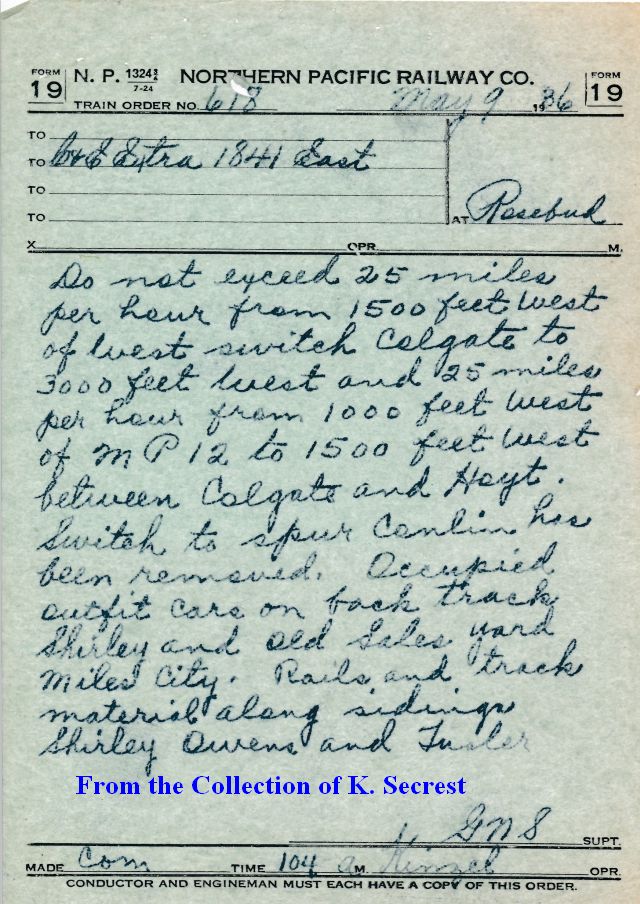 FORM 19 N. P. 1324½ 7-24 NORTHERN PACIFIC RAILWAY CO. FORM 19
TRAIN ORDER NO. 618 May 9 1936
TO
TO C&E Extra 1841 East
TO
TO AT Rosebud
X OPR. M.
Do not exceed 25 miles
per hour from 1500 feet West
of West switch Colgate to
3000 feet West and 25 miles
per hour from 1000 feet West
of M P 12 to 1500 feet West
between Colgate and Hoyt.
Switch to spur Conlin has
been removed. Occupied
outfit cars on back track
Shirley and old Sales yard
Miles City. Rails and track
material along sidings
Shirley Owens and Tusler
From the Collection of K. Secrest
G N S SUPT.
MADE Com TIME 104 a M. Kinzel OPR.
CONDUCTOR AND ENGINEMAN MUST EACH HAVE A COPY OF THIS ORDER.